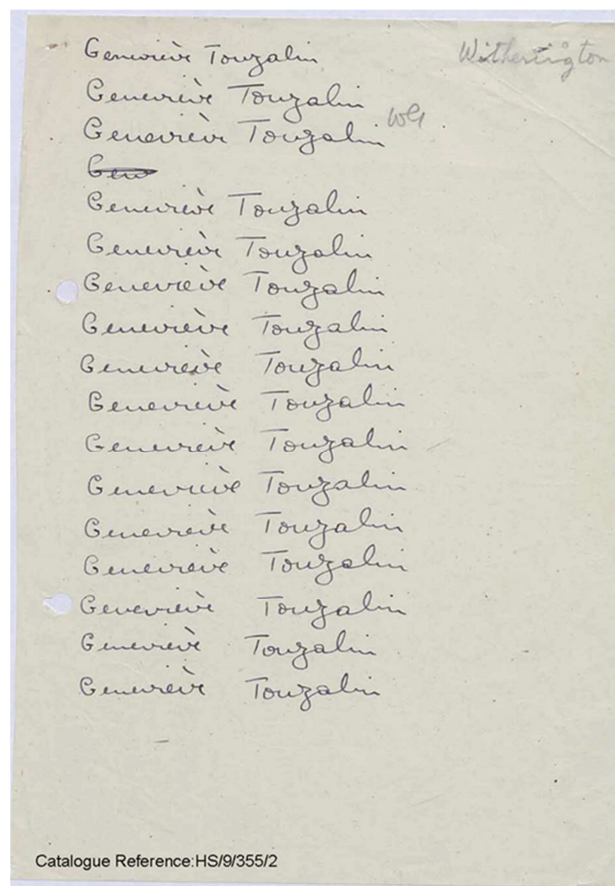 Geneviève Touzalin
Witherington
Geneviève Touzalin
Geneviève Touzalin
Gen
Geneviève Touzalin
Geneviève Touzalin
Geneviève Touzalin
Geneviève Touzalin
Geneviève Touzalin
Geneviève Touzalin
Geneviève Touzalin
Geneviève Touzalin
Geneviève Touzalin
Geneviève Touzalin
Geneviève Touzalin
Geneviève Touzalin
Geneviève Touzalin
Catalogue Reference:HS/9/355/2